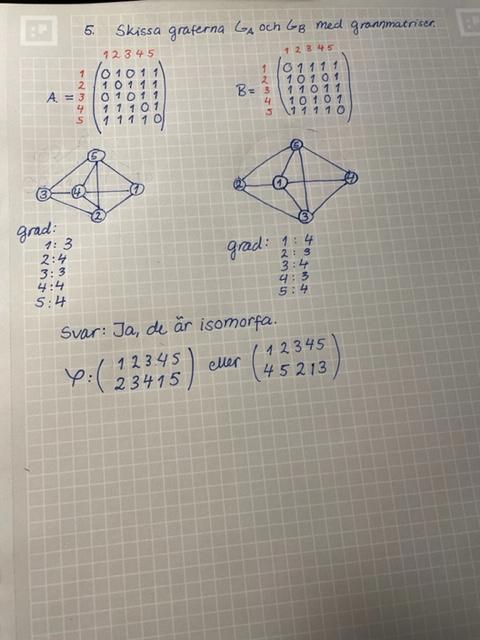 5. Skissa graferna G_A och G_B med grannmatriser.
1 2 3 4 5
1 0 1 0 1 1
2 1 0 1 1 1
A = 3 0 1 0 1 1
4 1 1 1 0 1
5 1 1 1 1 0
1 2 3 4 5
1 0 1 1 1 1
2 1 0 1 0 1
B = 3 1 1 0 1 1
4 1 0 1 0 1
5 1 1 1 1 0
5
3 4 1
2
5
2 1 4
3
grad:
1: 3
2: 4
3: 3
4: 4
5: 4
grad: 1: 4
2: 3
3: 4
4: 3
5: 4
Svar: Ja, de är isomorfa.
φ: (1 2 3 4 5) eller (1 2 3 4 5)
(2 3 4 1 5) (4 5 2 1 3)